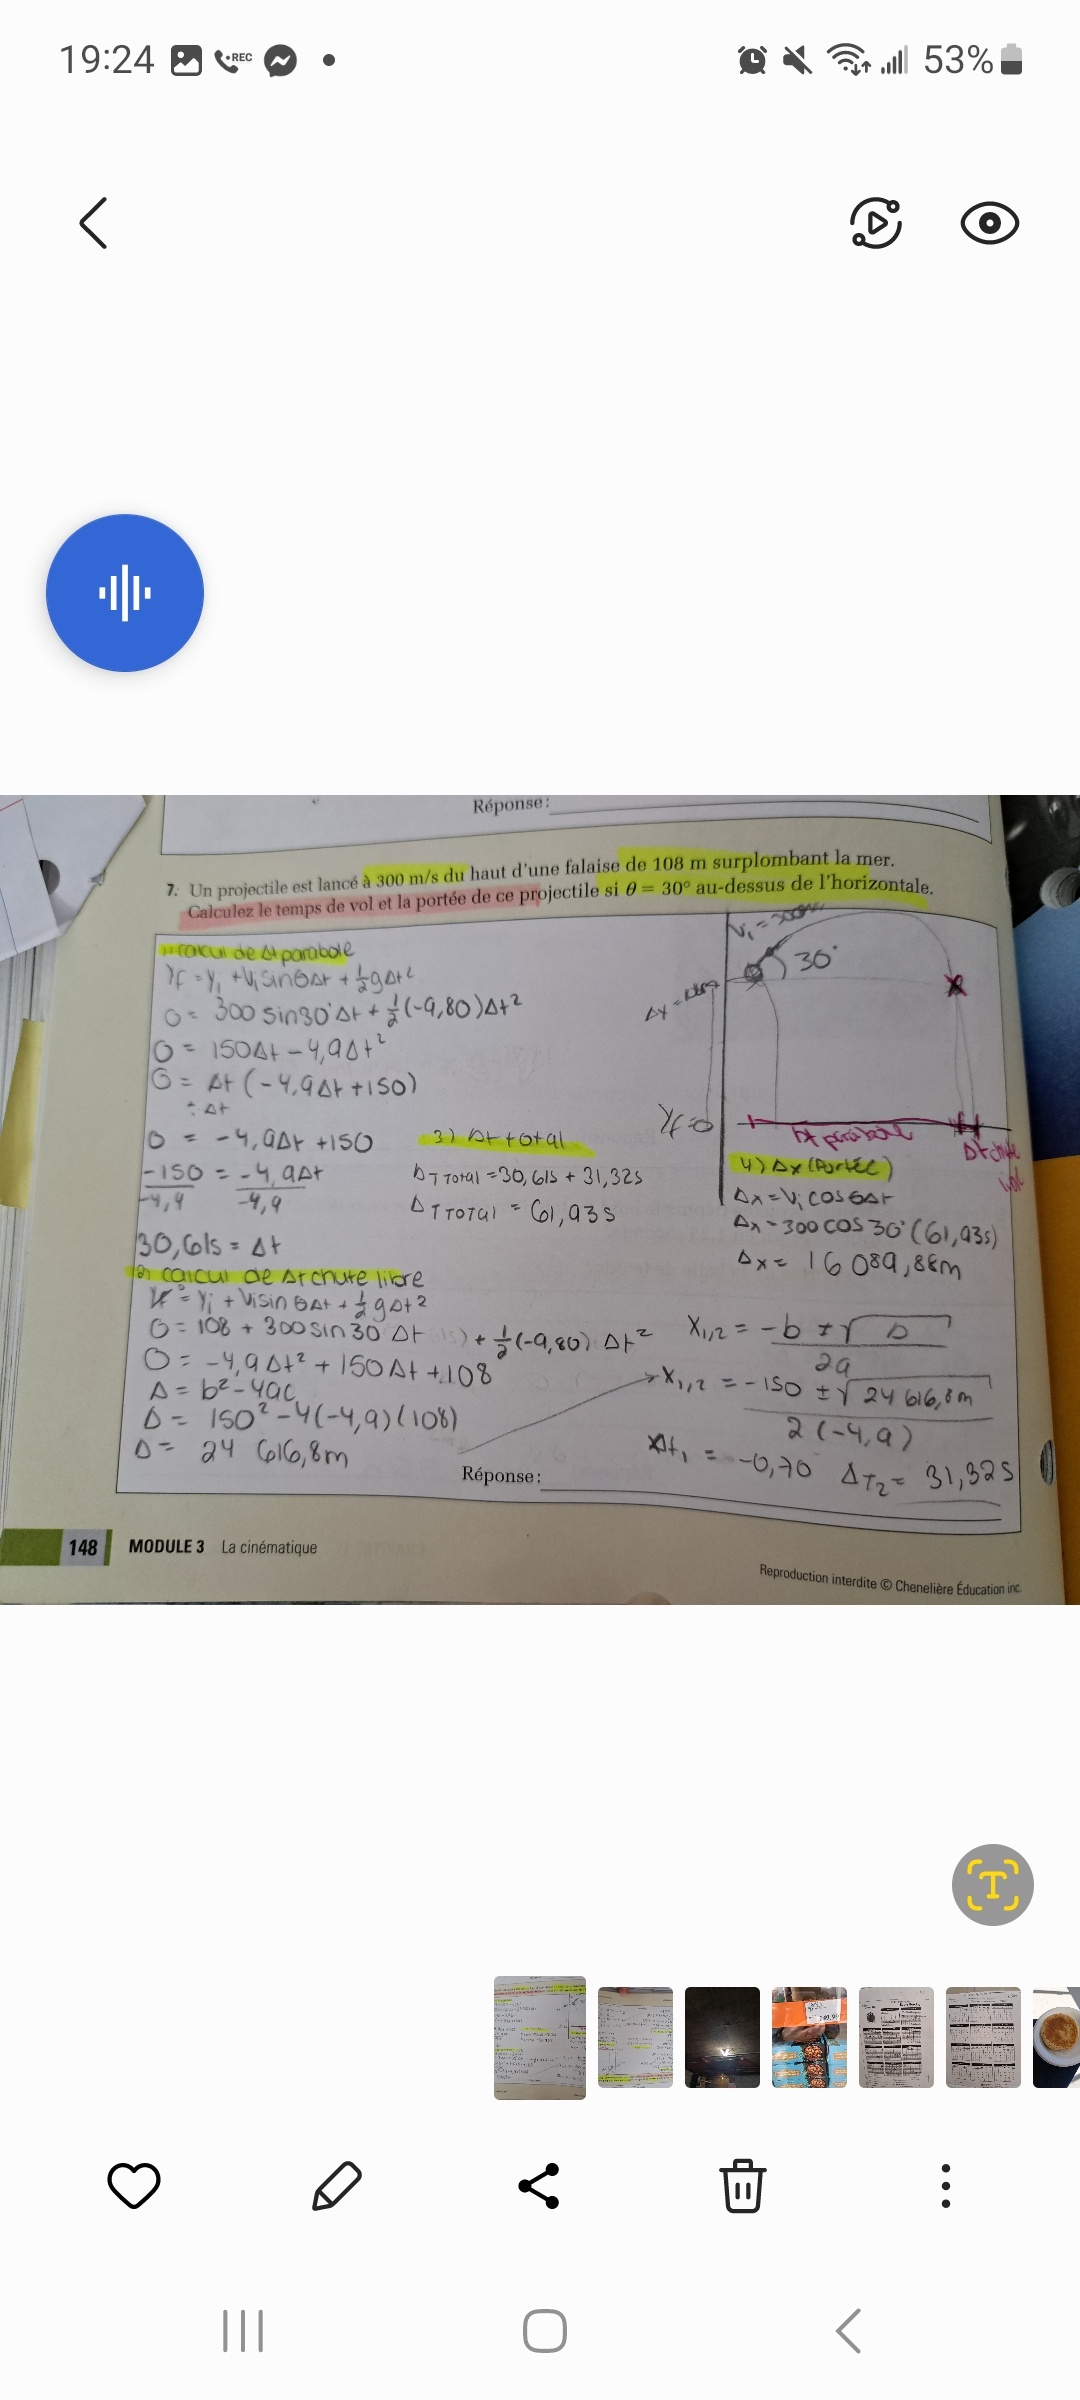 19:24
REC
53%
Réponse:
7. Un projectile est lancé à 300 m/s du haut d'une falaise de 108 m surplombant la mer.
Calculez le temps de vol et la portée de ce projectile si θ = 30° au-dessus de l'horizontale.
1) calcul de Δt parabole
Yf = Yi + Vi sinθΔt + ½gΔt²
0 = 300 sin30°Δt + ½(-9,80)Δt²
0 = 150Δt - 4,9Δt²
0 = Δt (-4,9Δt + 150)
÷ Δt
0 = -4,9Δt + 150
-150 = -4,9Δt
-4,9 -4,9
30,61s = Δt
2) calcul de Δt chute libre
Yf = Yi + Vi sin θΔt + ½gΔt²
0 = 108 + 300 sin 30 Δt + ½(-9,80) Δt²
0 = -4,9Δt² + 150Δt + 108
Δ = b² - 4ac
Δ = 150² - 4(-4,9)(108)
Δ = 24 616,8m
3) Δt total
ΔT Total = 30,61s + 31,32s
ΔT TOTAL = 61,93s
30°
Yf = 0
Δt parabole
Δt chute
4) Δx (Portée)
Δx = Vi cosθΔt
Δx = 300 cos 30° (61,93s)
Δx = 16 089,88m
X1,2 = -b ± √Δ
2a
X1,2 = -150 ± √24 616,8m
2(-4,9)
Δt1 = -0,70 ΔT2 = 31,32s
Réponse:
148 MODULE 3 La cinématique
Reproduction interdite © Chenelière Éducation inc.
T